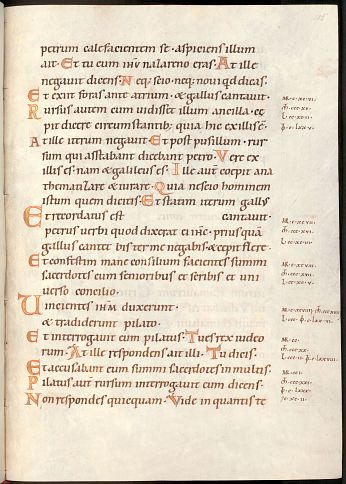 petrum calefacientem se · aspiciens illum
ait · Et tu cum ihu nazareno eras · At ille
negavit dicens · Neq; scio · neq; novi qd dicas ·
Et exiit foras ante atrium · & gallus cantavit ·
Rursus autem cum vidisset illum ancilla · ce
pit dicere circumstantib; quia hic ex illis ē ·
At ille iterum negavit · Et post pusillum · rur
sum qui astabant dicebant petro · Vere ex
illis es · nam & galileus es · Ille aut coepit ana
thematizare & iurare · Quia nescio hominem
istum quem dicitis · Et statim iterum gallus
Et recordatus est cantavit ·
petrus verbi quod dixerat ei ihc · priusquā
gallus cantet bis ter me negabis · & cepit flere ·
Et confestim mane consilium facientes summi
sacerdotes cum senioribus et scribis et uni
verso concilio ·
Vincientes ihm duxerunt ·
& tradiderunt pilato ·
Et interrogavit eum pilatus · Tu es rex iudeo
rum · At ille respondens ait illi · Tu dicis ·
Et accusabant eum summi sacerdotes in multis ·
Pilatus aut rursum interrogavit eum dicens ·
Non respondes quicquam · Vide in quantis te